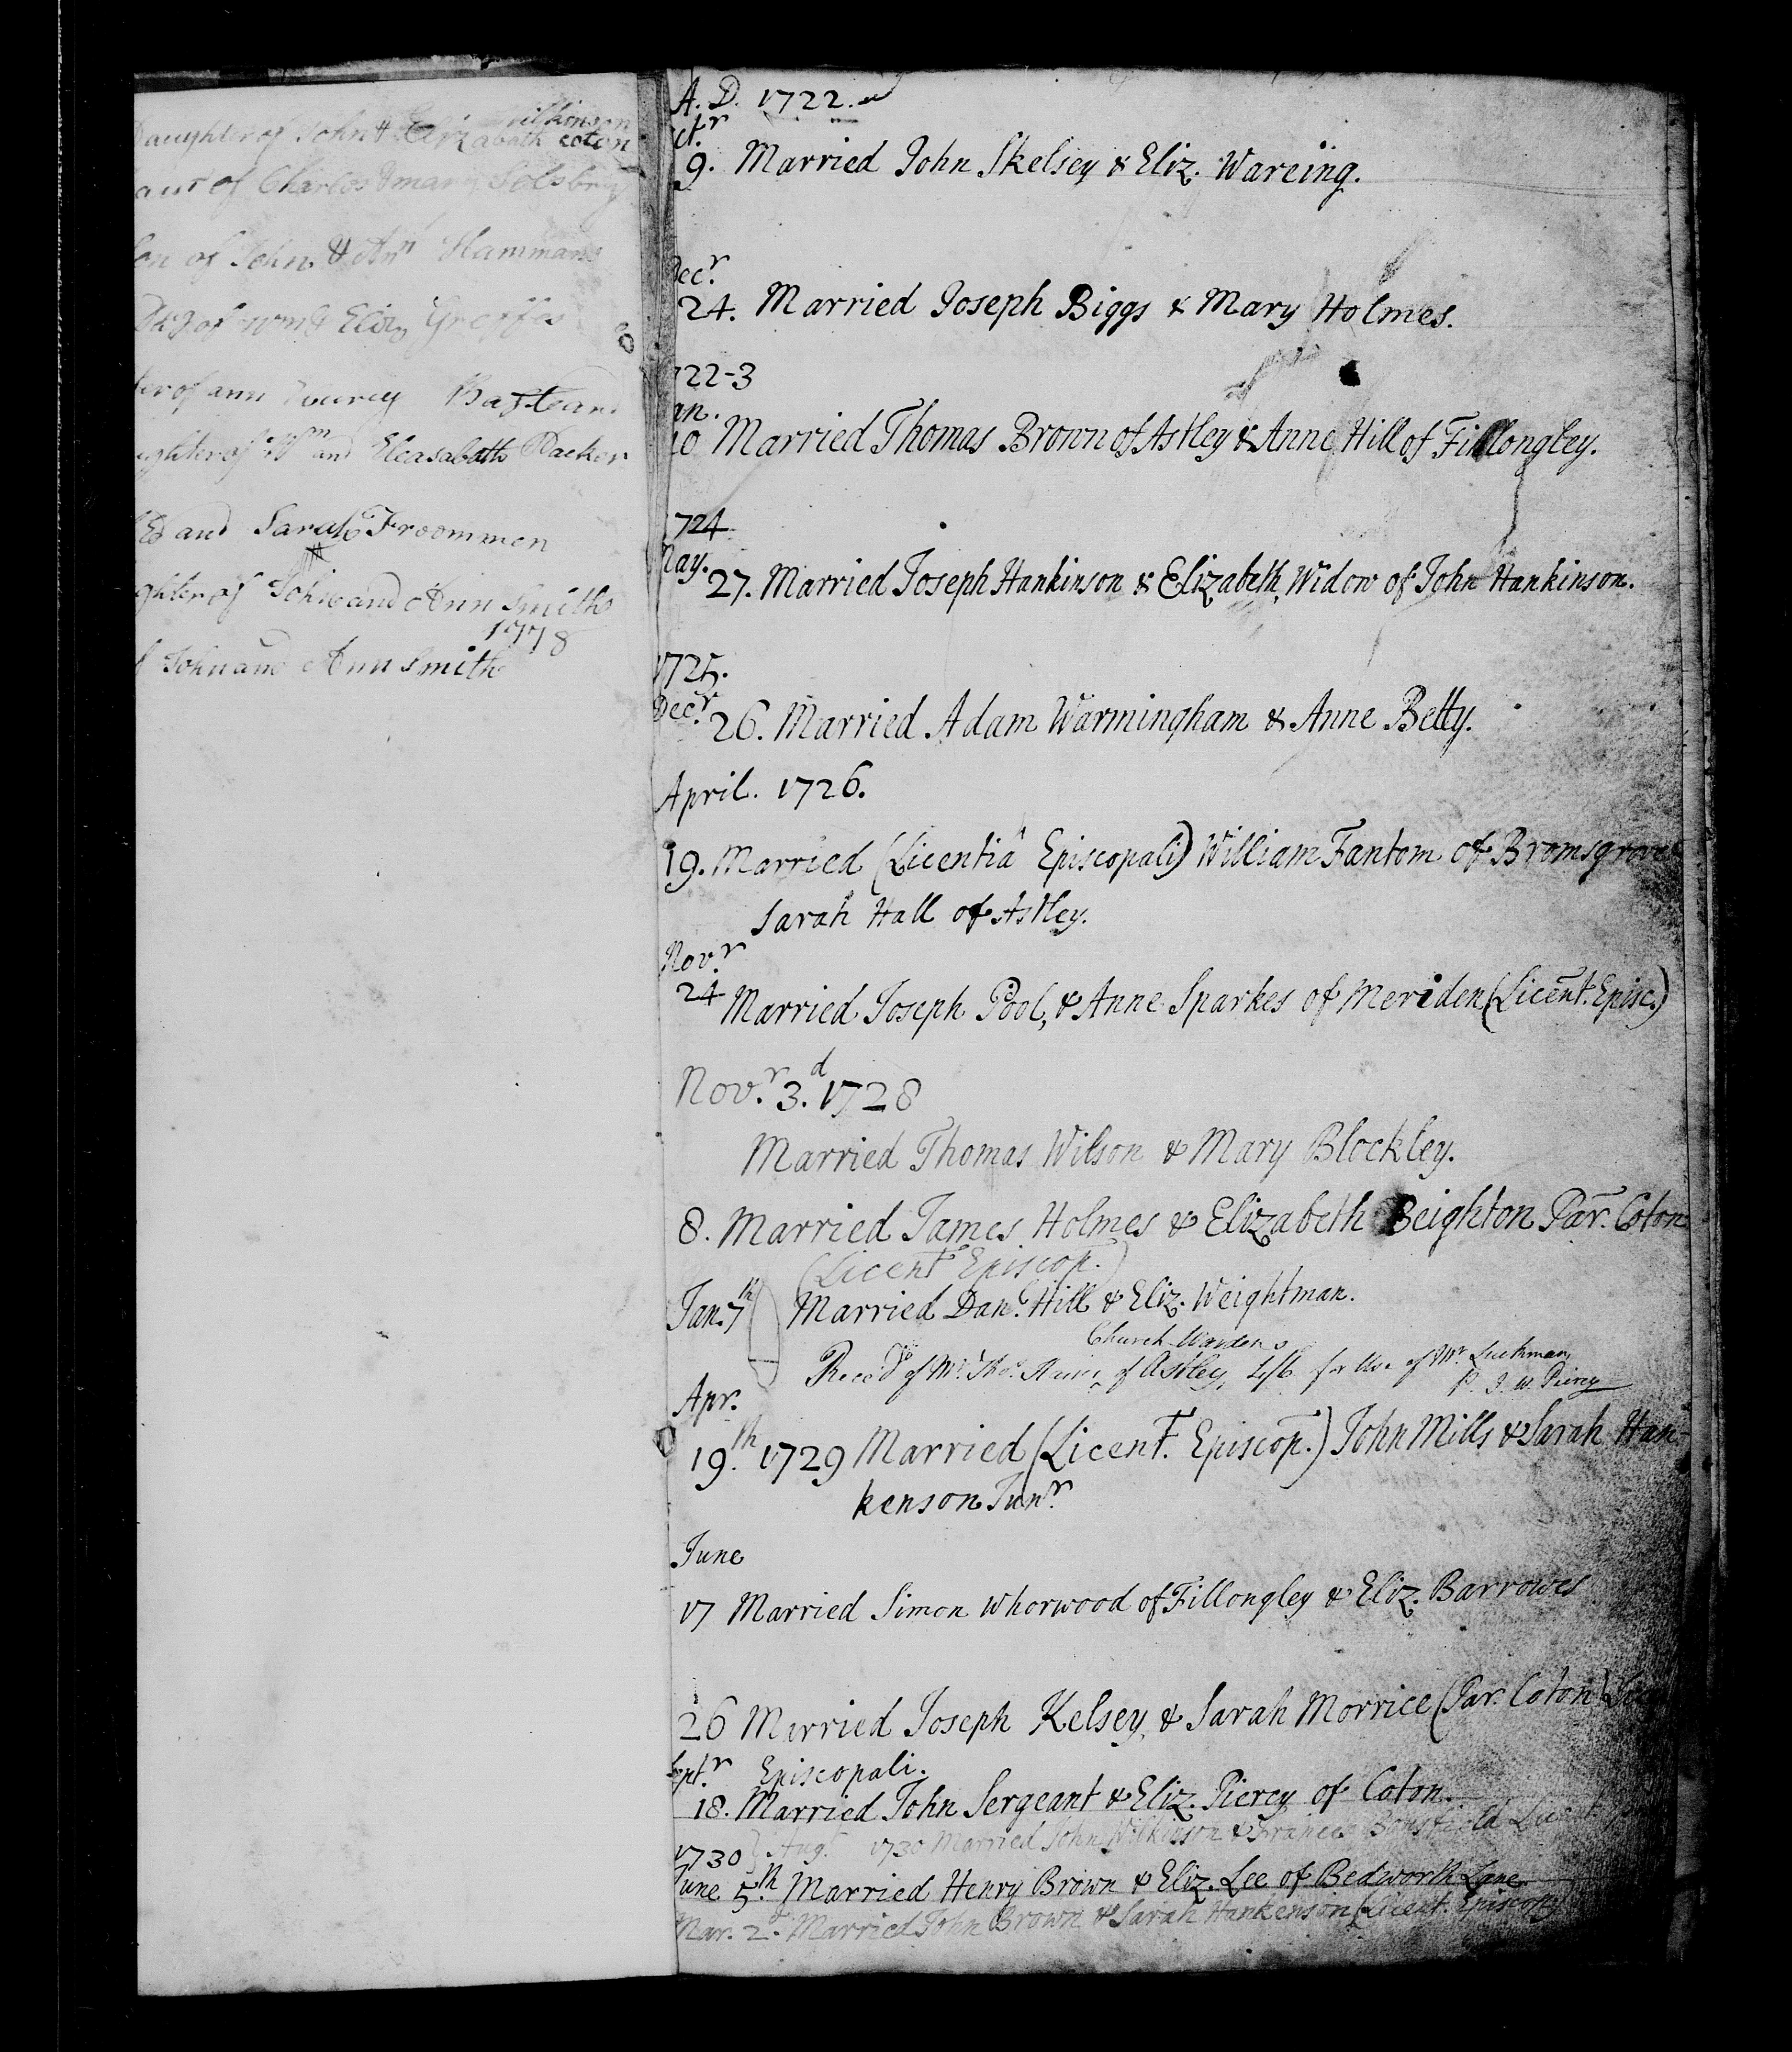 wilkinson
Daughter of John & Elizabath coton
aur of Charles & mary Solsbry
son of John & Ann Hammans
of Wm & Eliz Greffes
ter of ann Bastard
ughter of Wm and Eleasabath Packer
and Sarah Froommen
ghter of John and Ann Smith
1778
John and Ann Smith
A. D. 1722.
ct.r
9. Married John Skelsey & Eliz. Wareing.
Decr.
24. Married Joseph Biggs & Mary Holmes.
722-3
an.
10 Married Thomas Brown of Astley & Anne Hill of Fillongley.
1724
May.
27. Married Joseph Hankinson & Elizabeth, Widow of John Hankinson.
1725.
Decr.
26. Married Adam Warmingham & Anne Betty.
April. 1726.
19. Married (Licentiâ Episcopali) William Fantom of Bromsgrove
Sarah Hall of Astley.
Nov.r
24 Married Joseph Pool, & Anne Sparkes of Meriden (Licent. Episc.)
Nov.r 3.d 1728
Married Thomas Wilson & Mary Blockley.
8. Married James Holmes & Elizabeth Beighton Par. Coton
(Licent. Episcop.)
Jan. 7th Married Dan. Hill & Eliz. Weightman.
Church Warden
Rece'd of Mr. Tho.s of Astley, 4/6 for Use of Mr. Luckman
P. J. W. Piercy
Apr.
19.th 1729 Married (Licent. Episcop.) John Mills & Sarah Han-
kenson Jun.r
June
17 Married Simon Whorwood of Fillongley & Eliz. Barrowes
26 Married Joseph Kelsey, & Sarah Morrice (Par. Coton)
Sept.r Episcopali.
18. Married John Sergeant & Eliz. Piercy of Coton.
1730 } Aug.t 1730 Married John Wilkinson & Frances Bousfield
June 5.th Married Henry Brown & Eliz. Lee of Bedworth Lane
Mar. 2.d Married John Brown & Sarah Hankenson (Licent. Episcop.)